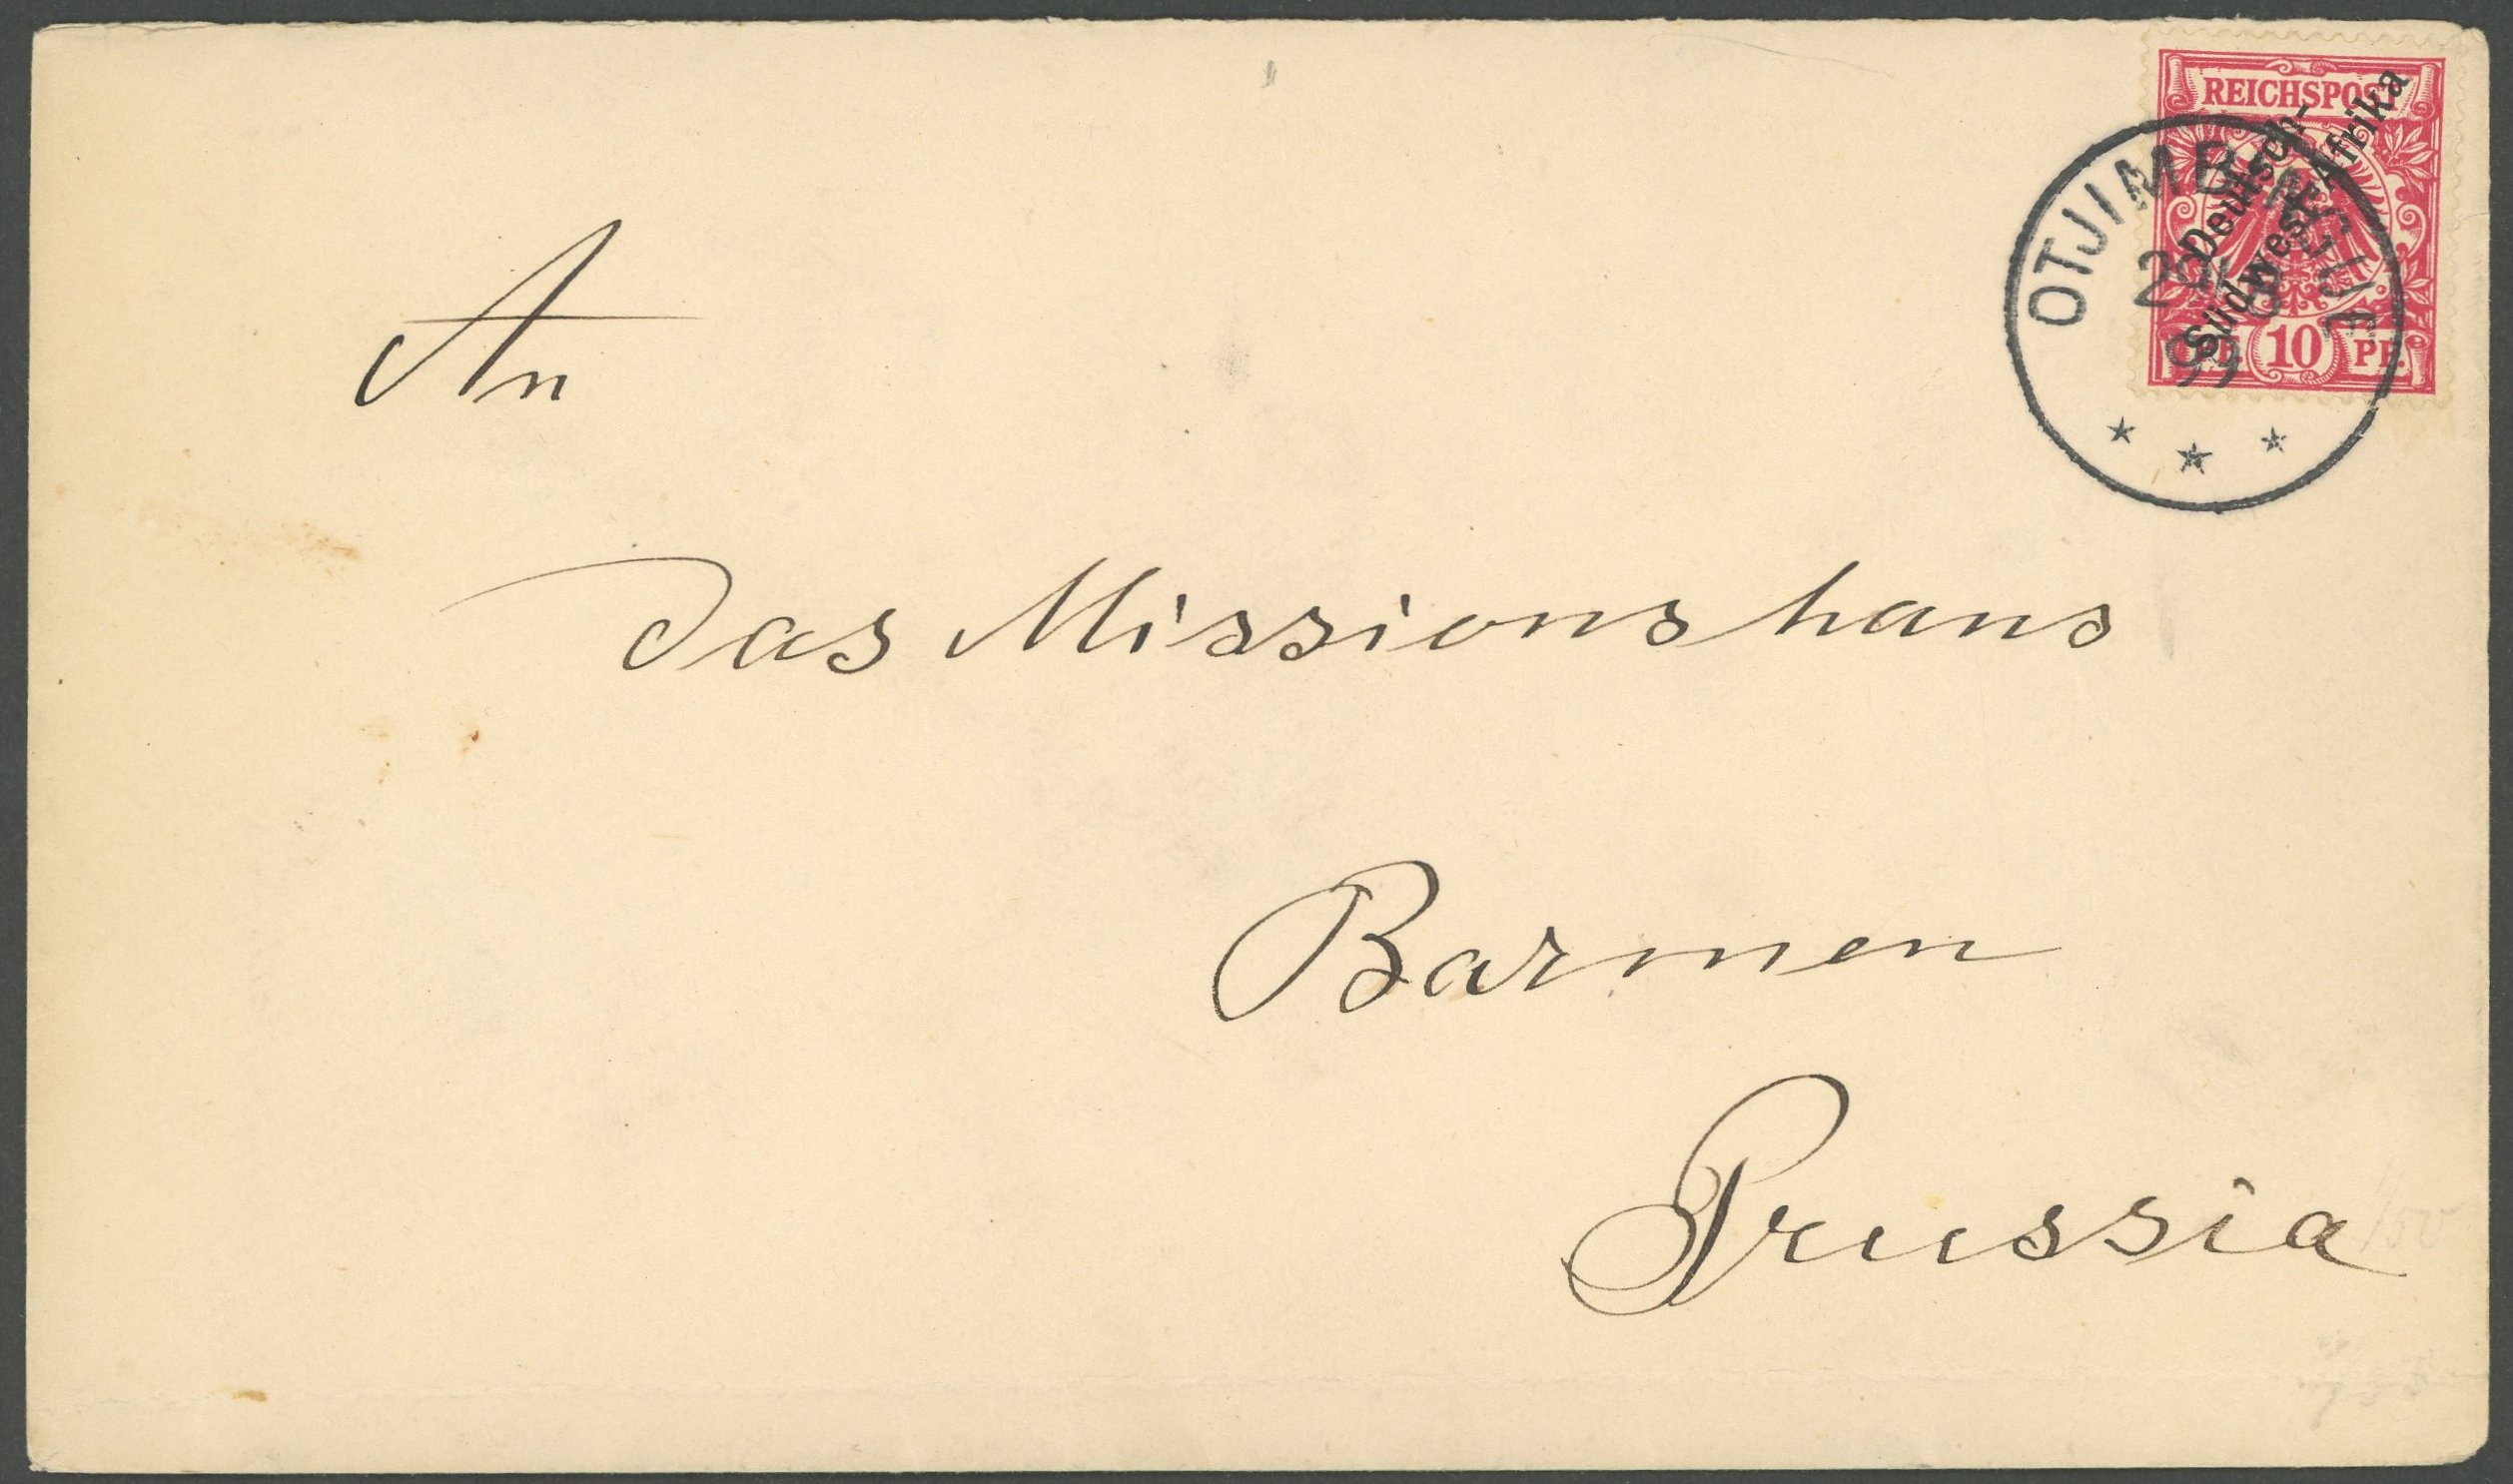 REICHSPOST
Deutsch-
Südwest-Afrika
PF. 10 PF.
OTJIMBINGUE
99
An
das Missionshaus
Barmen
Prussia